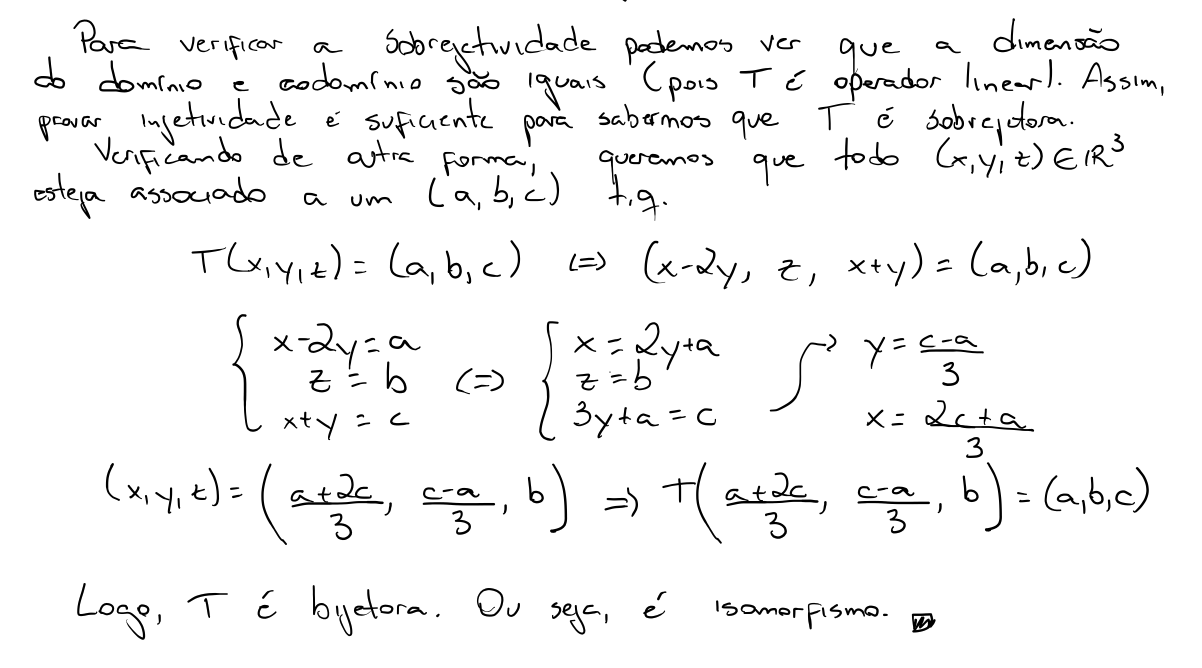 Para verificar a sobrejetividade podemos ver que a dimensão
do domínio e codomínio são iguais (pois T é operador linear). Assim,
provar injetividade é suficiente para sabermos que T é sobrejetora.
Verificando de outra forma, queremos que todo (x,y,z) ∈ ℝ³
esteja associado a um (a,b,c) t.q.
T(x,y,z) = (a,b,c) <=> (x-2y, z, x+y) = (a,b,c)
{ x-2y=a <=> { x = 2y+a → y = (c-a)/3
z = b z = b
x+y = c 3y+a = c x = (2c+a)/3
(x,y,z) = ((a+2c)/3, (c-a)/3, b) => T((a+2c)/3, (c-a)/3, b) = (a,b,c)
Logo, T é bijetora. Ou seja, é isomorfismo.